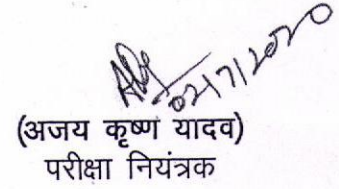 02/7/2020
(अजय कृष्ण यादव)
परीक्षा नियंत्रक